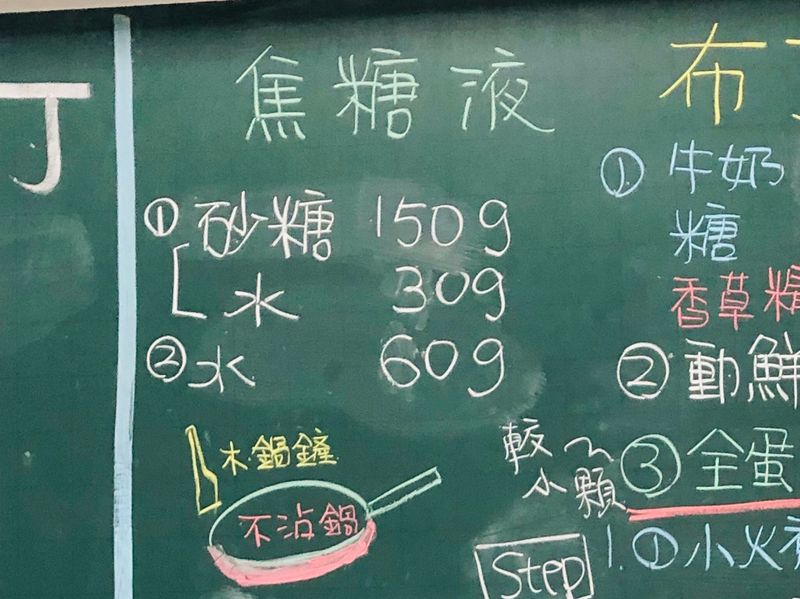 丁
焦糖液
① 砂糖 150g
水 30g
② 水 60g
木鍋鏟
不沾鍋
布
① 牛奶
糖
香草精
② 動鮮
較小顆
③ 全蛋
Step
1. ① 小火